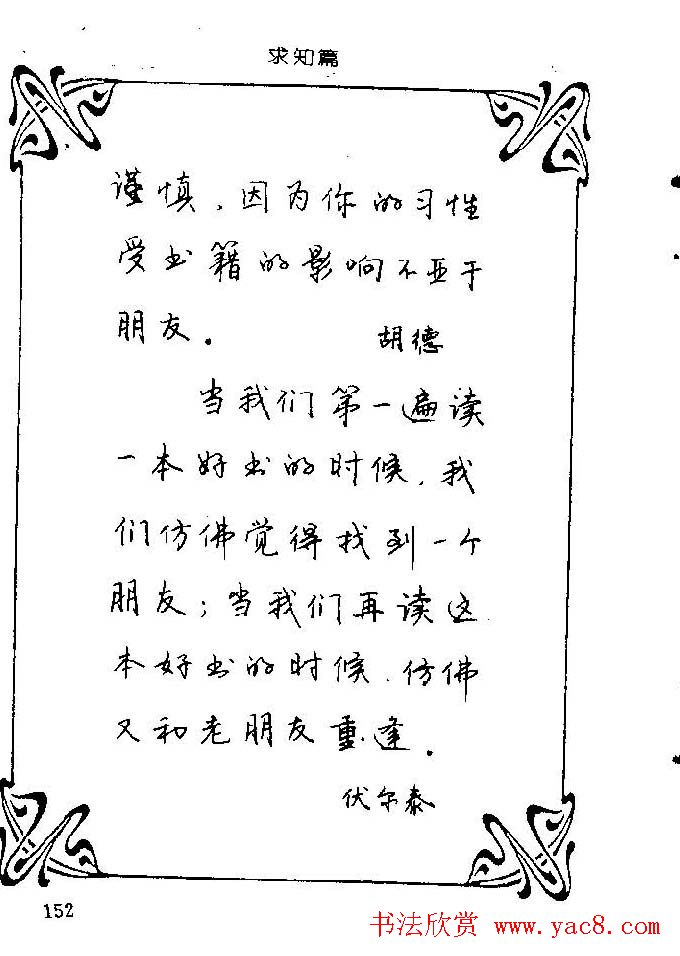 求知篇
谨慎,因为你的习性
受书籍的影响不亚于
朋友。
胡德
当我们第一遍读
一本好书的时候,我
们仿佛觉得找到一个
朋友;当我们再读这
本好书的时候,仿佛
又和老朋友重逢。
伏尔泰
152
书法欣赏 www.yac8.com